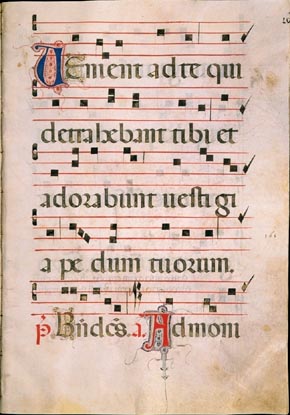 Venient ad te qui
detrahebant tibi et
adorabunt uestigi
a pe dum tuorum.
p̄. Bn̄dc̄s. a. Admoni